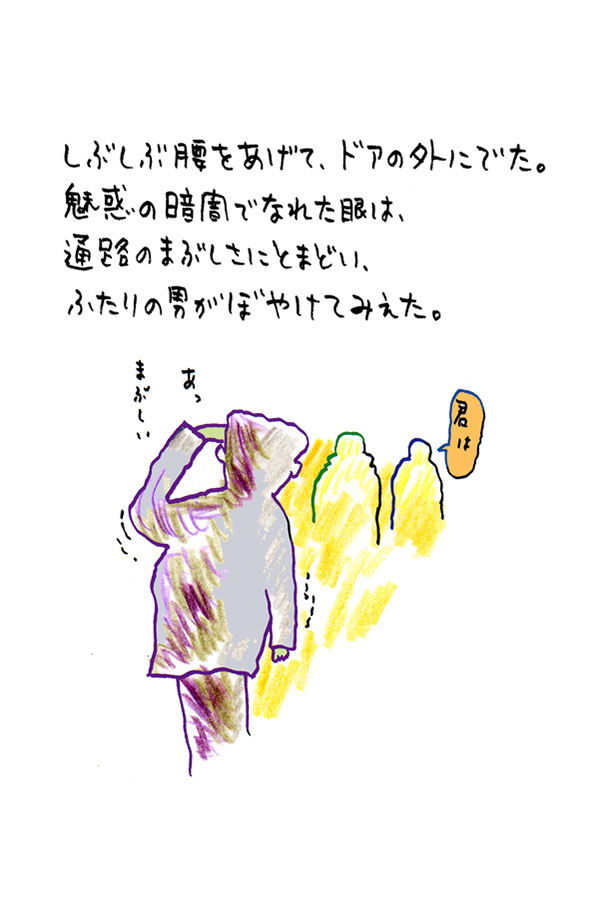 しぶしぶ腰をあげて、ドアの外にでた。
魅惑の暗闇でなれた眼は、
通路のまぶしさにとまどい、
ふたりの男がぼやけてみえた。
あっ
まぶしい
君は